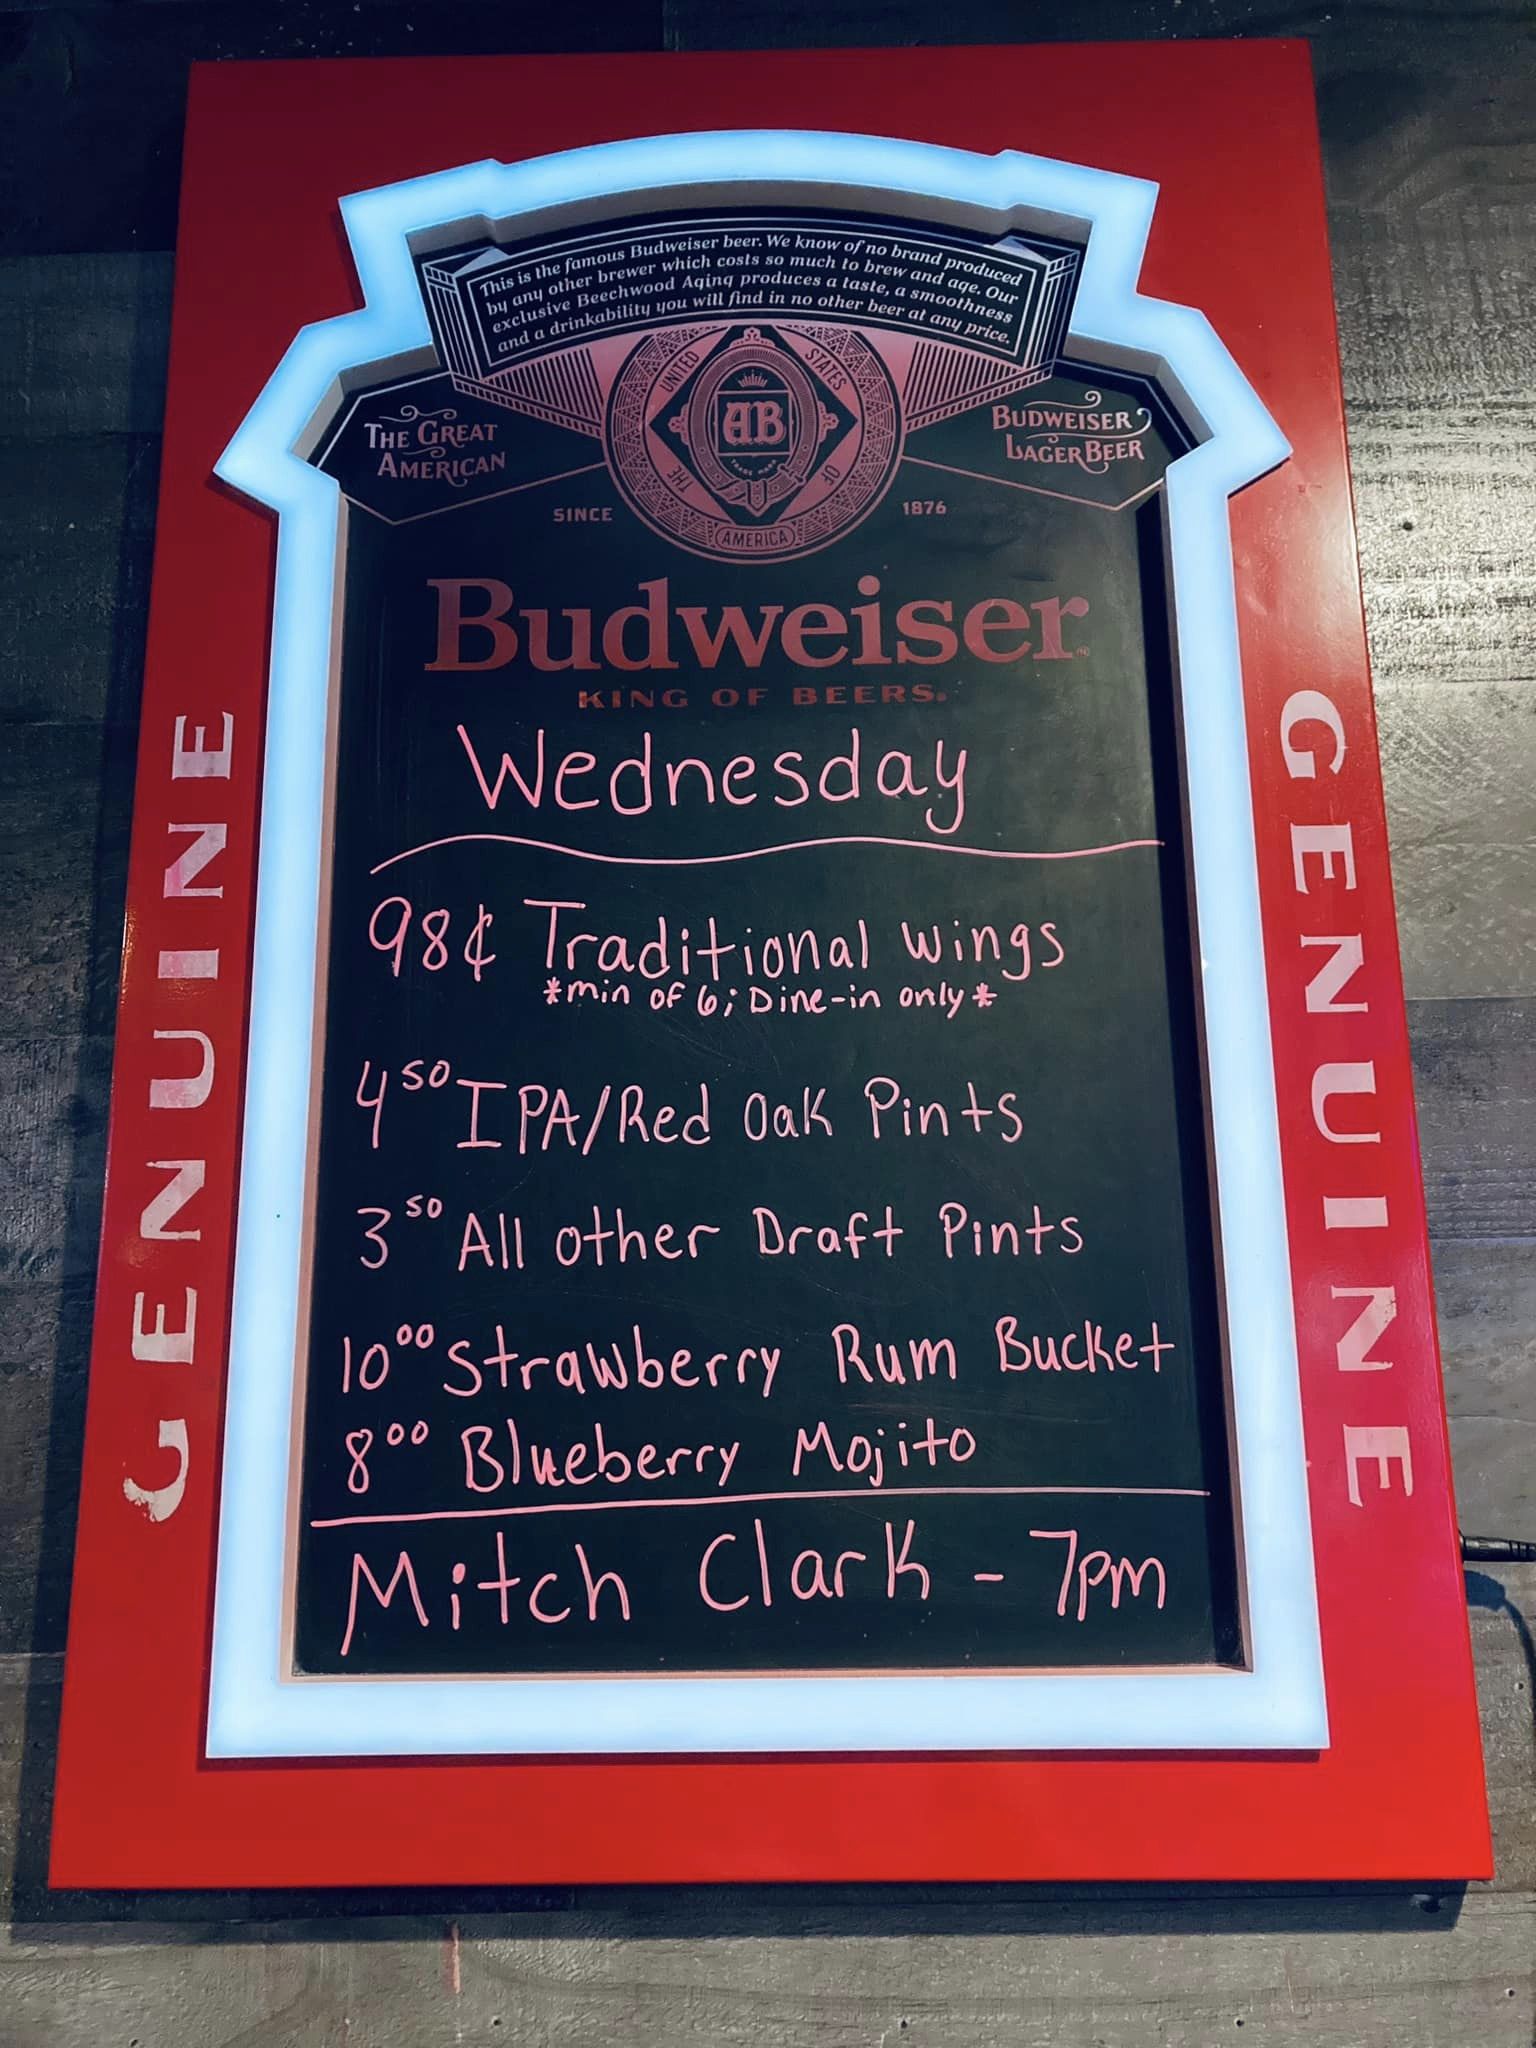 This is the famous Budweiser beer. We know of no brand produced
by any other brewer which costs so much to brew and age. Our
exclusive Beechwood Aging produces a taste, a smoothness
and a drinkability you will find in no other beer at any price.
THE GREAT
AMERICAN
UNITED
STATES
THE
OF
AMERICA
AB
TRADE MARK
BUDWEISER
LAGER BEER
SINCE
1876
Budweiser
KING OF BEERS.
GENUINE
GENUINE
Wednesday
98¢ Traditional Wings
*min of 6; Dine-in only*
4 50 IPA/Red Oak Pints
3 50 All other Draft Pints
10 00 Strawberry Rum Bucket
8 00 Blueberry Mojito
Mitch Clark - 7pm